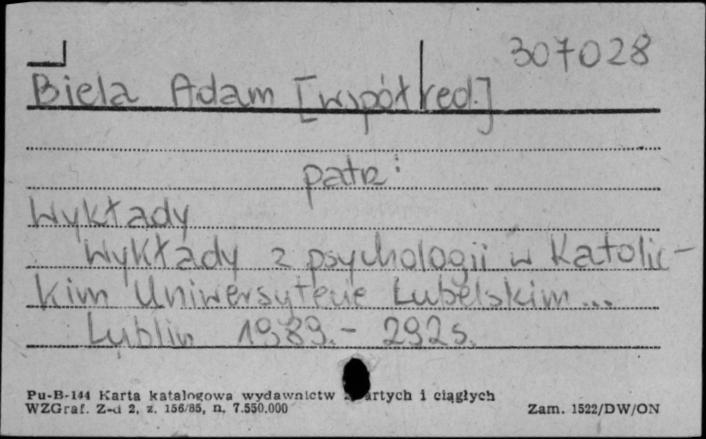 307028
Biela Adam [współred.]
patrz:
Wykłady
Wykłady z psychologii w Katolic-
kim Uniwersytecie Lubelskim...
Lublin 1989.- 292 s.
Pu-B-144 Karta katalogowa wydawnictw zwartych i ciągłych
WZGraf. Z-d 2, z. 156/85, n. 7.550.000
Zam. 1522/DW/ON